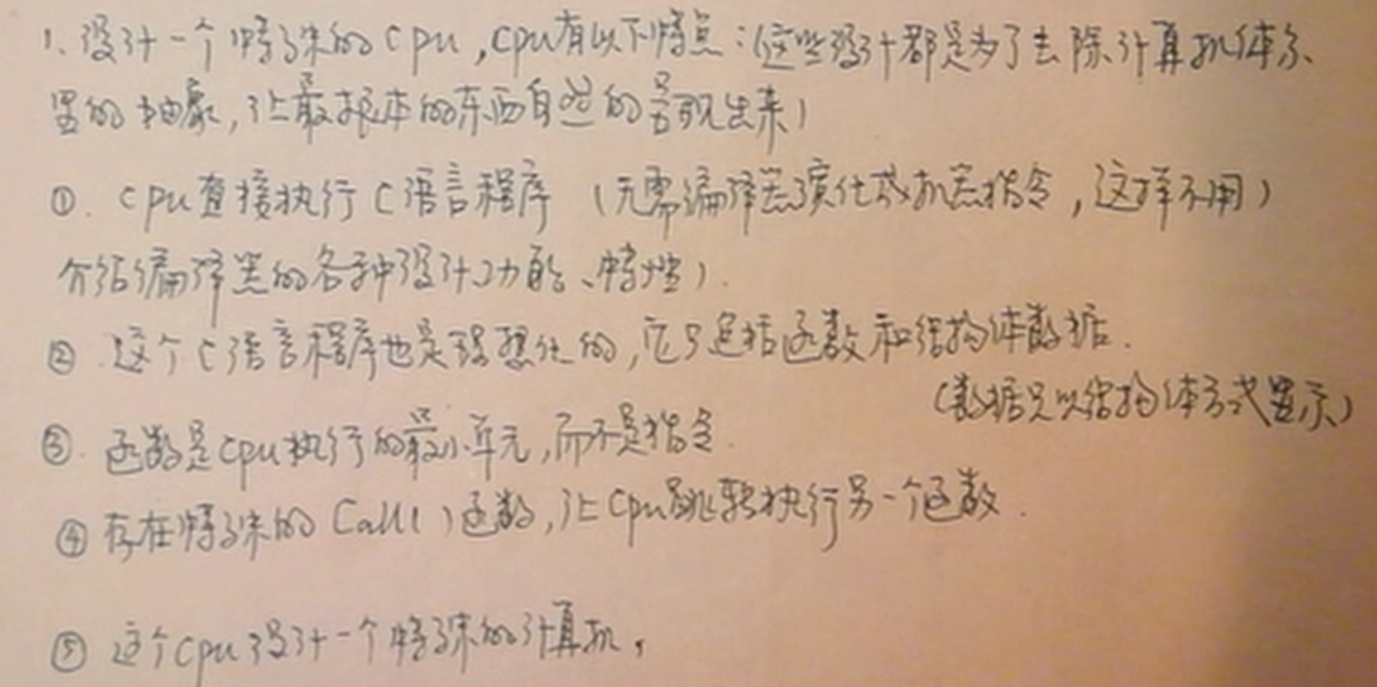 1、设计一个特殊的cpu,cpu有以下特点:(这些设计都是为了去除计算机体系
里的抽象,让最根本的东西自然的呈现出来)
①. cpu直接执行C语言程序 (无需编译器演化成机器指令,这样不用)
介绍编译器的各种设计、功能、特性).
② 这个C语言程序也是理想化的,它只包括函数和结构体数据.
(数据只以结构体方式显示)
③. 函数是cpu执行的最小单元,而不是指令.
④ 存在特殊的Call()函数,让cpu跳转执行另一个函数.
⑤ 这个cpu设计一个特殊的计算机,